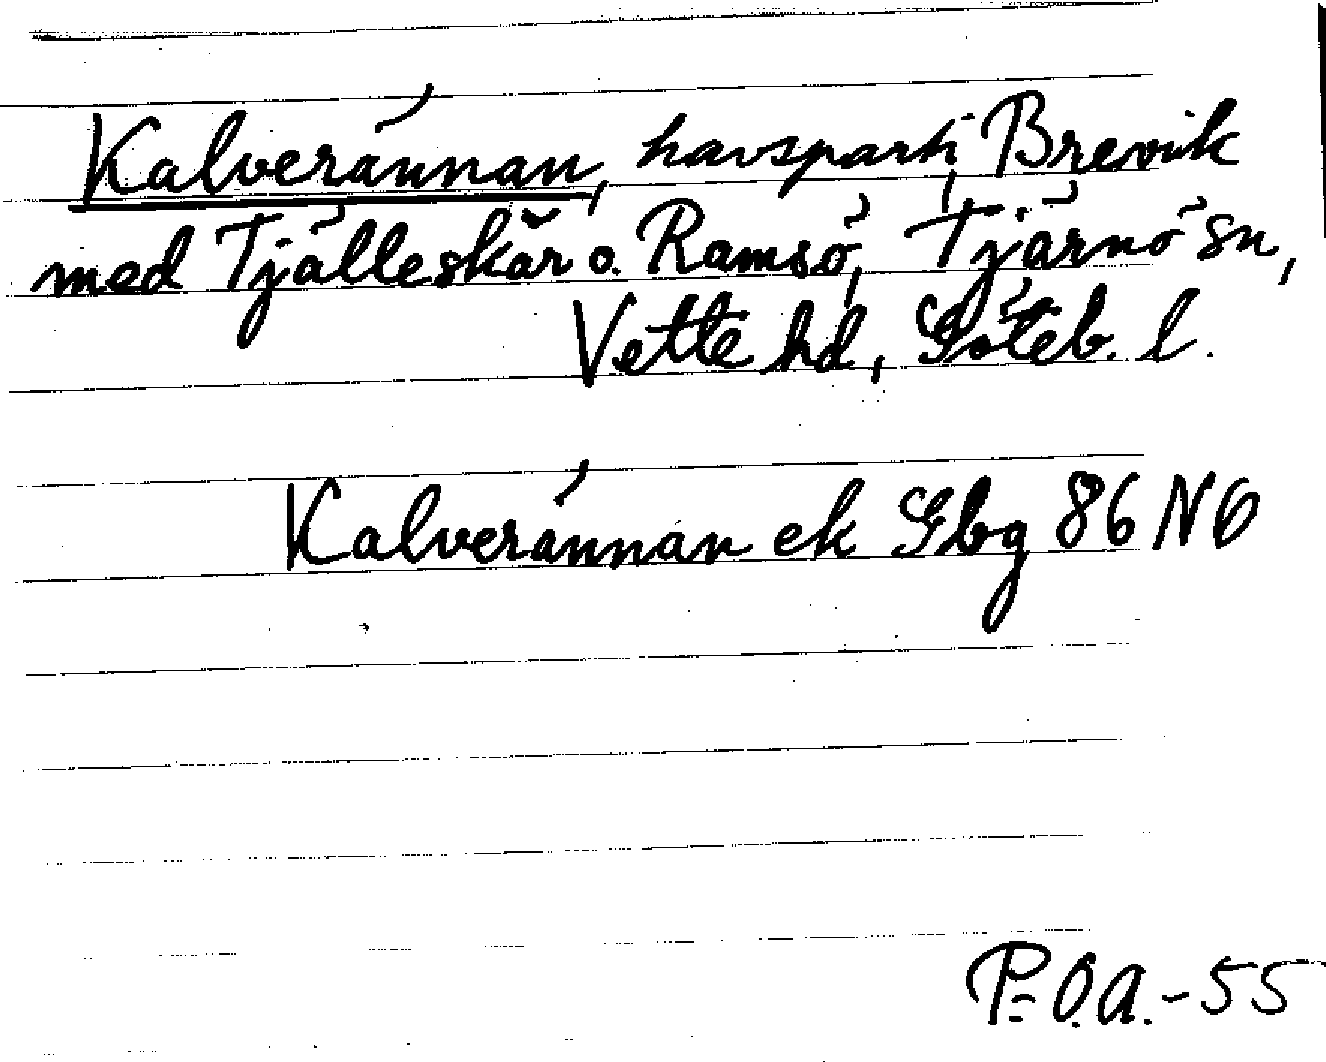 Kalverännan, havsparti, Brevik
med Tjälleskär o. Ramsö, Tjärnö sn,
Vette hd, Göteb. l.
Kalverännan ek Gbg 86 NO
P.O.A.-55